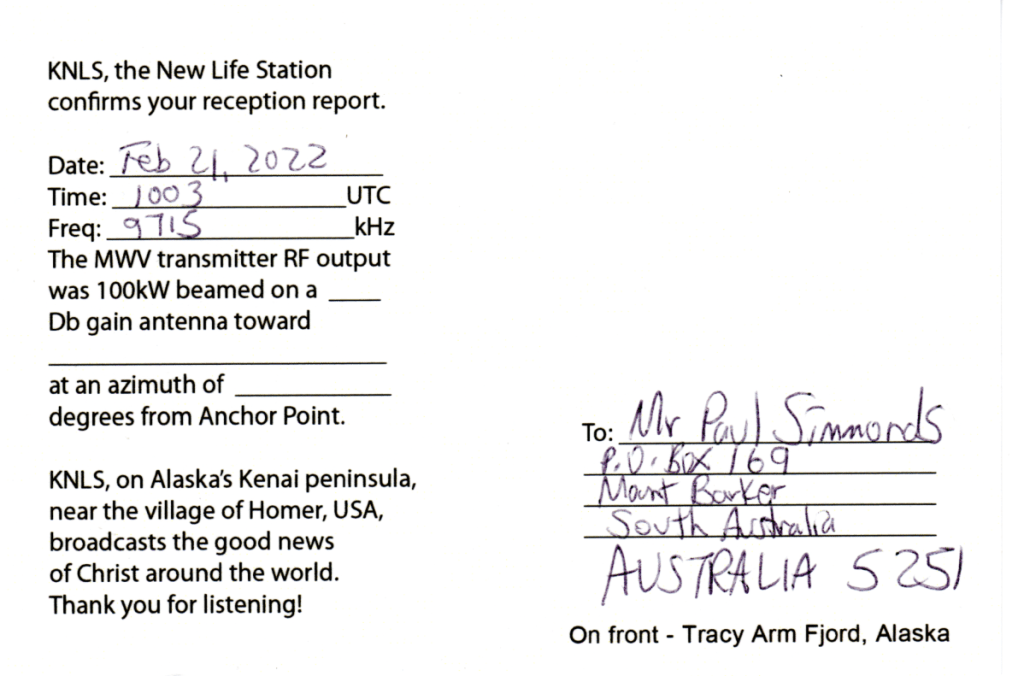 KNLS, the New Life Station
confirms your reception report.
Date: Feb 21, 2022
Time: 1003 UTC
Freq: 9715 kHz
The MWV transmitter RF output
was 100kW beamed on a ____
Db gain antenna toward
____
at an azimuth of ____
degrees from Anchor Point.
KNLS, on Alaska's Kenai peninsula,
near the village of Homer, USA,
broadcasts the good news
of Christ around the world.
Thank you for listening!
To: Mr Paul Simmonds
P.O. BOX 169
Mount Barker
South Australia
AUSTRALIA 5251
On front - Tracy Arm Fjord, Alaska